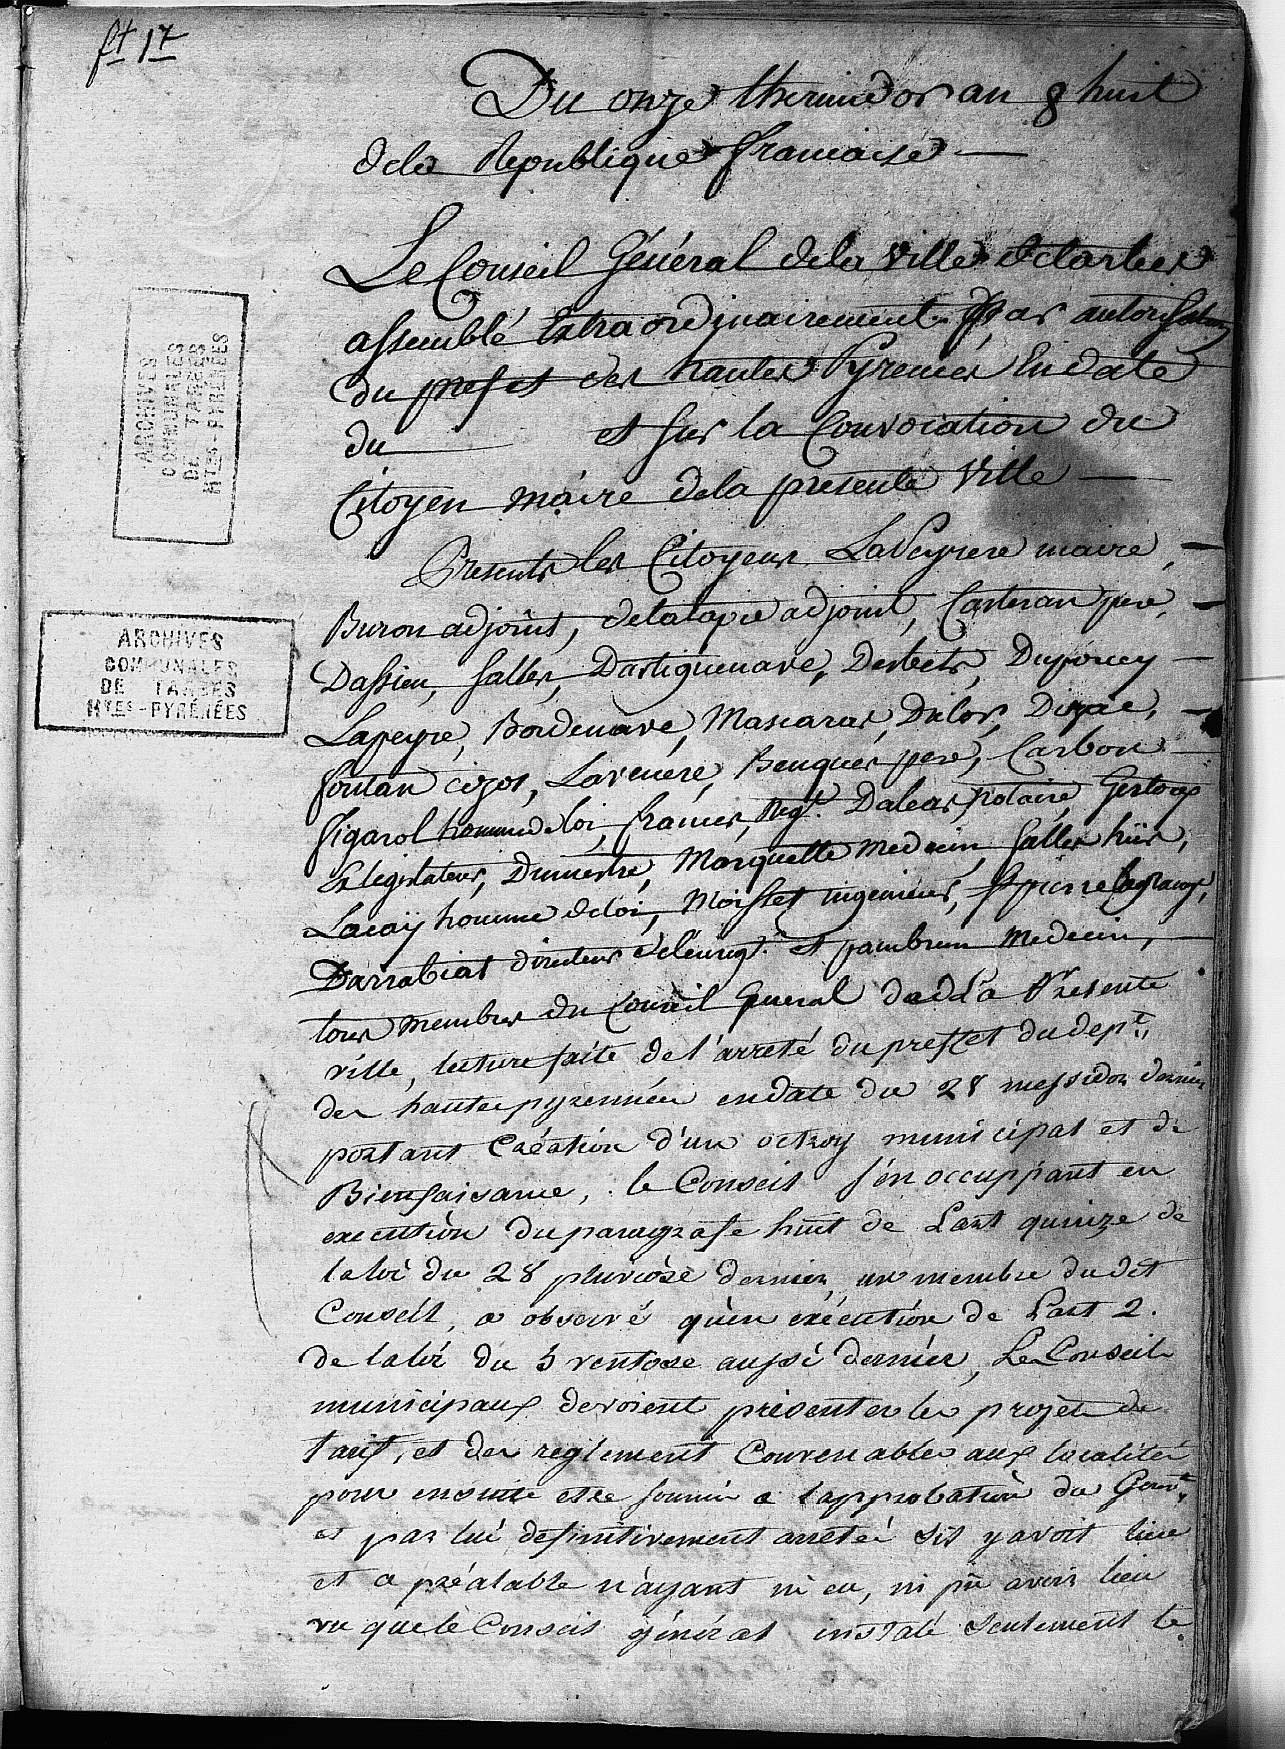 ft 17
Du onze thermidor an 8 huit
dela Republique francaise
Le Conseil Général dela Ville detarbes
assemblé Extraordinairement par autorisation
du prefet des hautes Pyrenées En date
du et sur la Convocation du
Citoyen maire dela presente Ville
ARCHIVES
COMMUNALES
DE TARBES
HTES-PYRÉNÉES
Presents les Citoyens Laveyrere maire,
Buron adjoint, delatapie adjoint, Casteran pere,
ARCHIVES
COMMUNALES
DE TARBES
HTES-PYRÉNÉES
Dassieu, salles, Dartiguenave, Desbets, Dupouey
Lapeyre, Bordenave, Mascaras, Dulor, Dizac,
fontan cizos, Lavenère, Bauquès pere, Carbon
figarol homme deloi, francés, neg.t Daleas, notaire, Gertoux
Exlegislateur, Dumestre, Marquette Medecin, salles hiis,
Lacaÿ homme deloi, Moisset ingenieur, 
Darrabiat directeur del'enreg.t et pambrun Medecin,
tous membres du Conseil General de la Presente
ville, lecture faite de l'arreté du prefet du dep.t
des hautes pyrennées en date du 28 messidor dernier
portant Création d'un octroy municipal et de
Bienfaisance, le Conseil s'en occuppant en
execution du paragrafe huit de L'art quinze de
la loi du 28 pluviose dernier, un membre du dit
Conseil, a observé qu'en exécution de L'art 2.
de la loi du 5 ventose aussi dernier, Les Conseils
municipaux devoient présenter les projets de
tarif, et des reglement Convenables aux localités
pour ensuite etre soumis a l'approbation du Gouv.t
et par lui definitivement arretés s'il y avoit lieu
et ce préalable n'ayant ni eu, ni pû avoir lieu
vu que le Conseil général installé seulement le